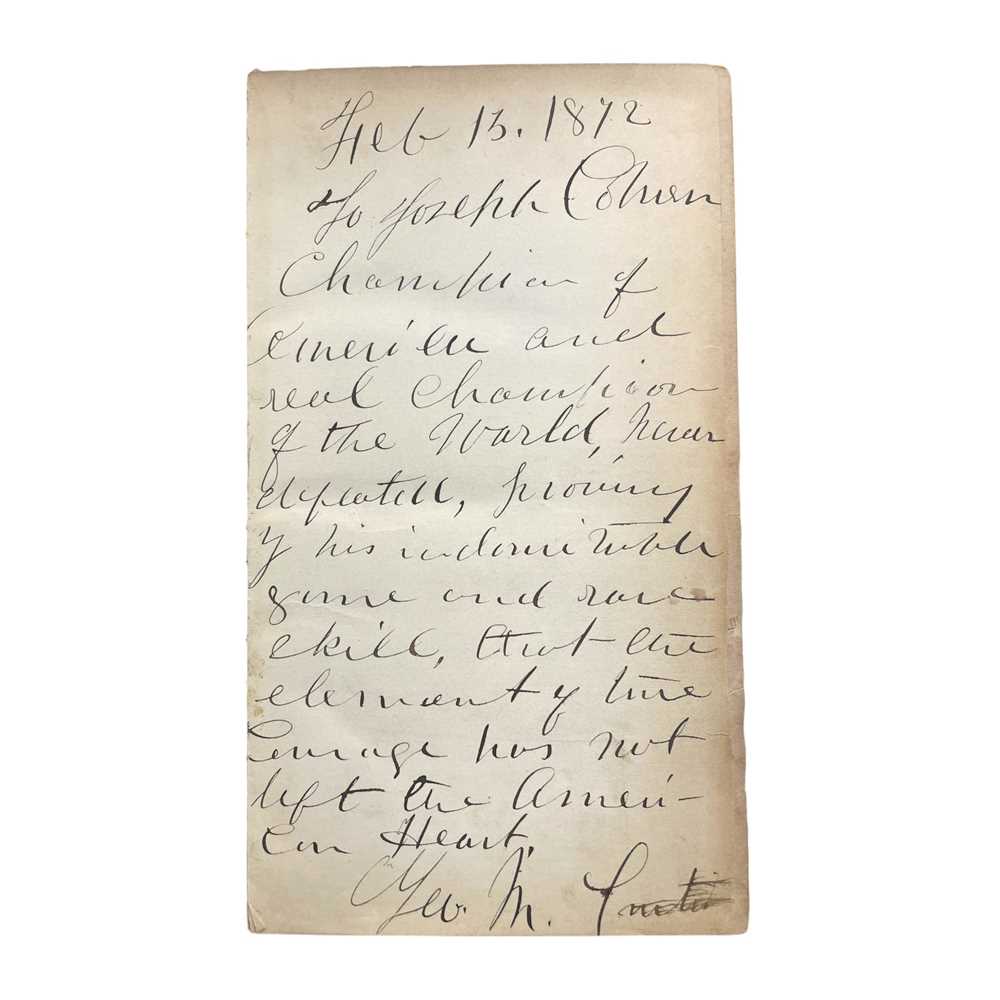 Feb 13. 1872
To Joseph Coburn
Champion of
America and
real Champion
of the World, never
defeated, proving
by his indomitable
game and rare
skill, that the
element of true
Courage has not
left the Ameri-
can Heart.
Geo. M. Curtis